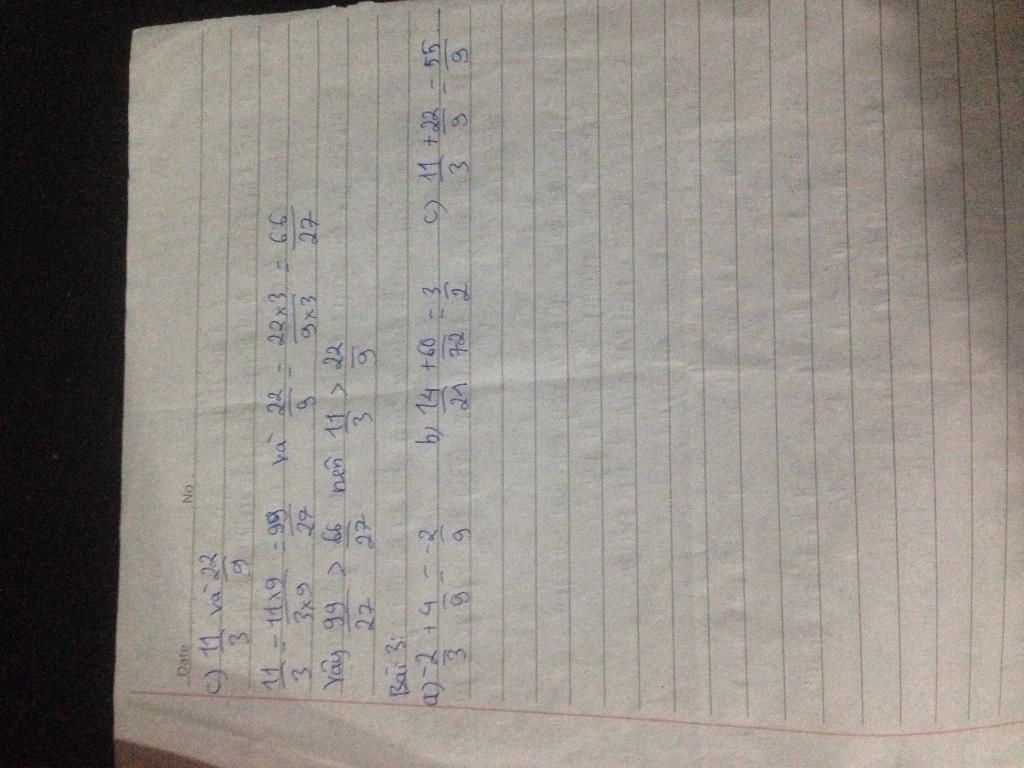 Date No
c) 11/3 và 22/9
11/3 = 11x9/3x9 = 99/27 và 22/9 = 22x3/9x3 = 66/27
Vậy 99/27 > 66/27 nên 11/3 > 22/9
Bài 3:
a) -2/3 + 4/9 = -2/9 b) 14/21 + 60/72 = 3/2 c) 11/3 + 22/9 = 55/9